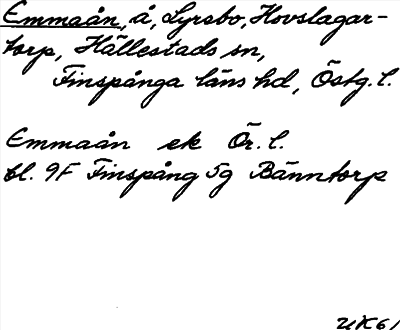 Emmaån, å, Lyrsbo, Hovslagar-
torp, Hällestads sn,
Finspånga läns hd, Östg. l.
Emmaån ek Ör. l.
bl. 9F Finspång 5g Bänntorp
UK61